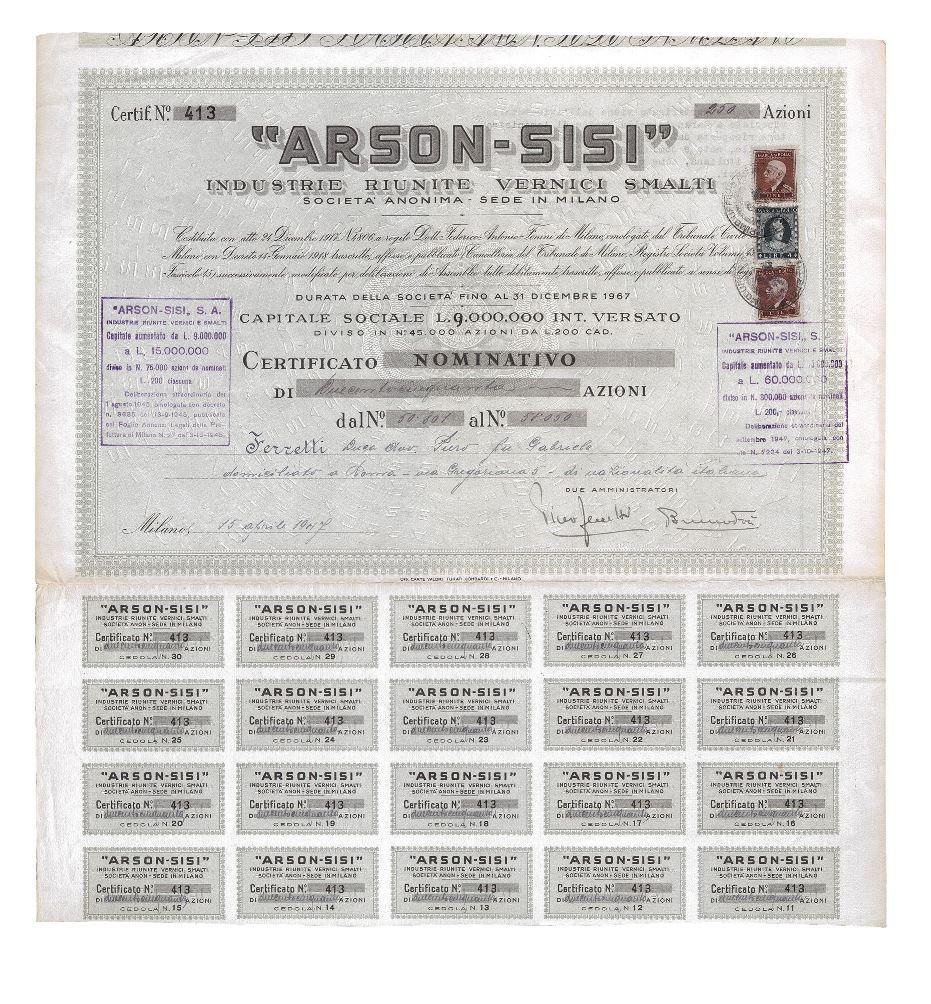 Certif. Nº 413
250 Azioni
"ARSON-SISI"
INDUSTRIE RIUNITE VERNICI SMALTI
SOCIETA' ANONIMA - SEDE IN MILANO
Costituita con atto 24 Dicembre 1917 N. 1806 a rogito Dott. Federico Antonio di Milano, omologato dal Tribunale Civile
Milano con Decreto 14 Gennaio 1918 trascritto, affisso e pubblicato Cancelleria del Tribunale di Milano, Registro Società Volume
Fascicolo successivamente modificato per deliberazioni di Assemblea tutte debitamente trascritte, affisse e pubblicate a sensi di legge
DURATA DELLA SOCIETÀ FINO AL 31 DICEMBRE 1967
CAPITALE SOCIALE L. 9.000.000 INT. VERSATO
DIVISO IN Nº 45.000 AZIONI DA L. 200 CAD.
"ARSON-SISI„ S. A.
INDUSTRIE RIUNITE VERNICI E SMALTI
Capitale aumentato da L. 9.000.000
a L. 15.000.000
diviso in N. 75.000 azioni da nominali
L. 200 ciascuna
Deliberazione straordinaria del
1 agosto 1945, omologata con decreto
n. 3625 del 13-9-1945, pubblicata
sul Foglio Annunzi Legali della Pre-
fettura di Milano N. 27 del 3-10-1945.
"ARSON-SISI„ S.
INDUSTRIE RIUNITE VERNICI E SMALTI
Capitale aumentato da L.
a L. 60.000.000
diviso in N. 300.000 azioni nominali
L. 200,- ciascuna
Deliberazione straordinaria del
settembre 1947, omologata
N. 7234 del 3-10-1947.
CERTIFICATO NOMINATIVO
DI duecentocinquanta AZIONI
dal Nº 50.801 al Nº 51.050
Ferretti Duca Piero fu Gabriele
domiciliato a Roma - via Gregoriana 5 - di nazionalità italiana
DUE AMMINISTRATORI
Milano, 15 aprile 1947
UFF. CARTE VALORI TURATI LOMBARDI E C. - MILANO
"ARSON-SISI" "ARSON-SISI" "ARSON-SISI" "ARSON-SISI" "ARSON-SISI"
INDUSTRIE RIUNITE VERNICI SMALTI INDUSTRIE RIUNITE VERNICI SMALTI INDUSTRIE RIUNITE VERNICI SMALTI INDUSTRIE RIUNITE VERNICI SMALTI INDUSTRIE RIUNITE VERNICI SMALTI
SOCIETÀ ANON - SEDE IN MILANO SOCIETÀ ANON - SEDE IN MILANO SOCIETÀ ANON - SEDE IN MILANO SOCIETÀ ANON - SEDE IN MILANO SOCIETÀ ANON - SEDE IN MILANO
Certificato Nº 413 Certificato Nº 413 Certificato Nº 413 Certificato Nº 413 Certificato Nº 413
DI duecentocinquanta AZIONI DI duecentocinquanta AZIONI DI duecentocinquanta AZIONI DI duecentocinquanta AZIONI DI duecentocinquanta AZIONI
CEDOLA N. 30 CEDOLA N. 29 CEDOLA N. 28 CEDOLA N. 27 CEDOLA N. 26
"ARSON-SISI" "ARSON-SISI" "ARSON-SISI" "ARSON-SISI" "ARSON-SISI"
INDUSTRIE RIUNITE VERNICI SMALTI INDUSTRIE RIUNITE VERNICI SMALTI INDUSTRIE RIUNITE VERNICI SMALTI INDUSTRIE RIUNITE VERNICI SMALTI INDUSTRIE RIUNITE VERNICI SMALTI
SOCIETÀ ANON - SEDE IN MILANO SOCIETÀ ANON - SEDE IN MILANO SOCIETÀ ANON - SEDE IN MILANO SOCIETÀ ANON - SEDE IN MILANO SOCIETÀ ANON - SEDE IN MILANO
Certificato Nº 413 Certificato Nº 413 Certificato Nº 413 Certificato Nº 413 Certificato Nº 413
DI duecentocinquanta AZIONI DI duecentocinquanta AZIONI DI duecentocinquanta AZIONI DI duecentocinquanta AZIONI DI duecentocinquanta AZIONI
CEDOLA N. 25 CEDOLA N. 24 CEDOLA N. 23 CEDOLA N. 22 CEDOLA N. 21
"ARSON-SISI" "ARSON-SISI" "ARSON-SISI" "ARSON-SISI" "ARSON-SISI"
INDUSTRIE RIUNITE VERNICI SMALTI INDUSTRIE RIUNITE VERNICI SMALTI INDUSTRIE RIUNITE VERNICI SMALTI INDUSTRIE RIUNITE VERNICI SMALTI INDUSTRIE RIUNITE VERNICI SMALTI
SOCIETÀ ANON - SEDE IN MILANO SOCIETÀ ANON - SEDE IN MILANO SOCIETÀ ANON - SEDE IN MILANO SOCIETÀ ANON - SEDE IN MILANO SOCIETÀ ANON - SEDE IN MILANO
Certificato Nº 413 Certificato Nº 413 Certificato Nº 413 Certificato Nº 413 Certificato Nº 413
DI duecentocinquanta AZIONI DI duecentocinquanta AZIONI DI duecentocinquanta AZIONI DI duecentocinquanta AZIONI DI duecentocinquanta AZIONI
CEDOLA N. 20 CEDOLA N. 19 CEDOLA N. 18 CEDOLA N. 17 CEDOLA N. 16
"ARSON-SISI" "ARSON-SISI" "ARSON-SISI" "ARSON-SISI" "ARSON-SISI"
INDUSTRIE RIUNITE VERNICI SMALTI INDUSTRIE RIUNITE VERNICI SMALTI INDUSTRIE RIUNITE VERNICI SMALTI INDUSTRIE RIUNITE VERNICI SMALTI INDUSTRIE RIUNITE VERNICI SMALTI
SOCIETÀ ANON - SEDE IN MILANO SOCIETÀ ANON - SEDE IN MILANO SOCIETÀ ANON - SEDE IN MILANO SOCIETÀ ANON - SEDE IN MILANO SOCIETÀ ANON - SEDE IN MILANO
Certificato Nº 413 Certificato Nº 413 Certificato Nº 413 Certificato Nº 413 Certificato Nº 413
DI duecentocinquanta AZIONI DI duecentocinquanta AZIONI DI duecentocinquanta AZIONI DI duecentocinquanta AZIONI DI duecentocinquanta AZIONI
CEDOLA N. 15 CEDOLA N. 14 CEDOLA N. 13 CEDOLA N. 12 CEDOLA N. 11